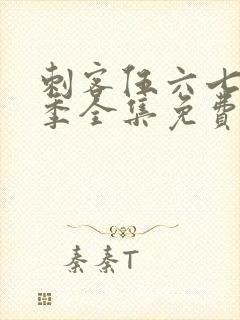 刺客伍六七
季全集免费
秦秦T